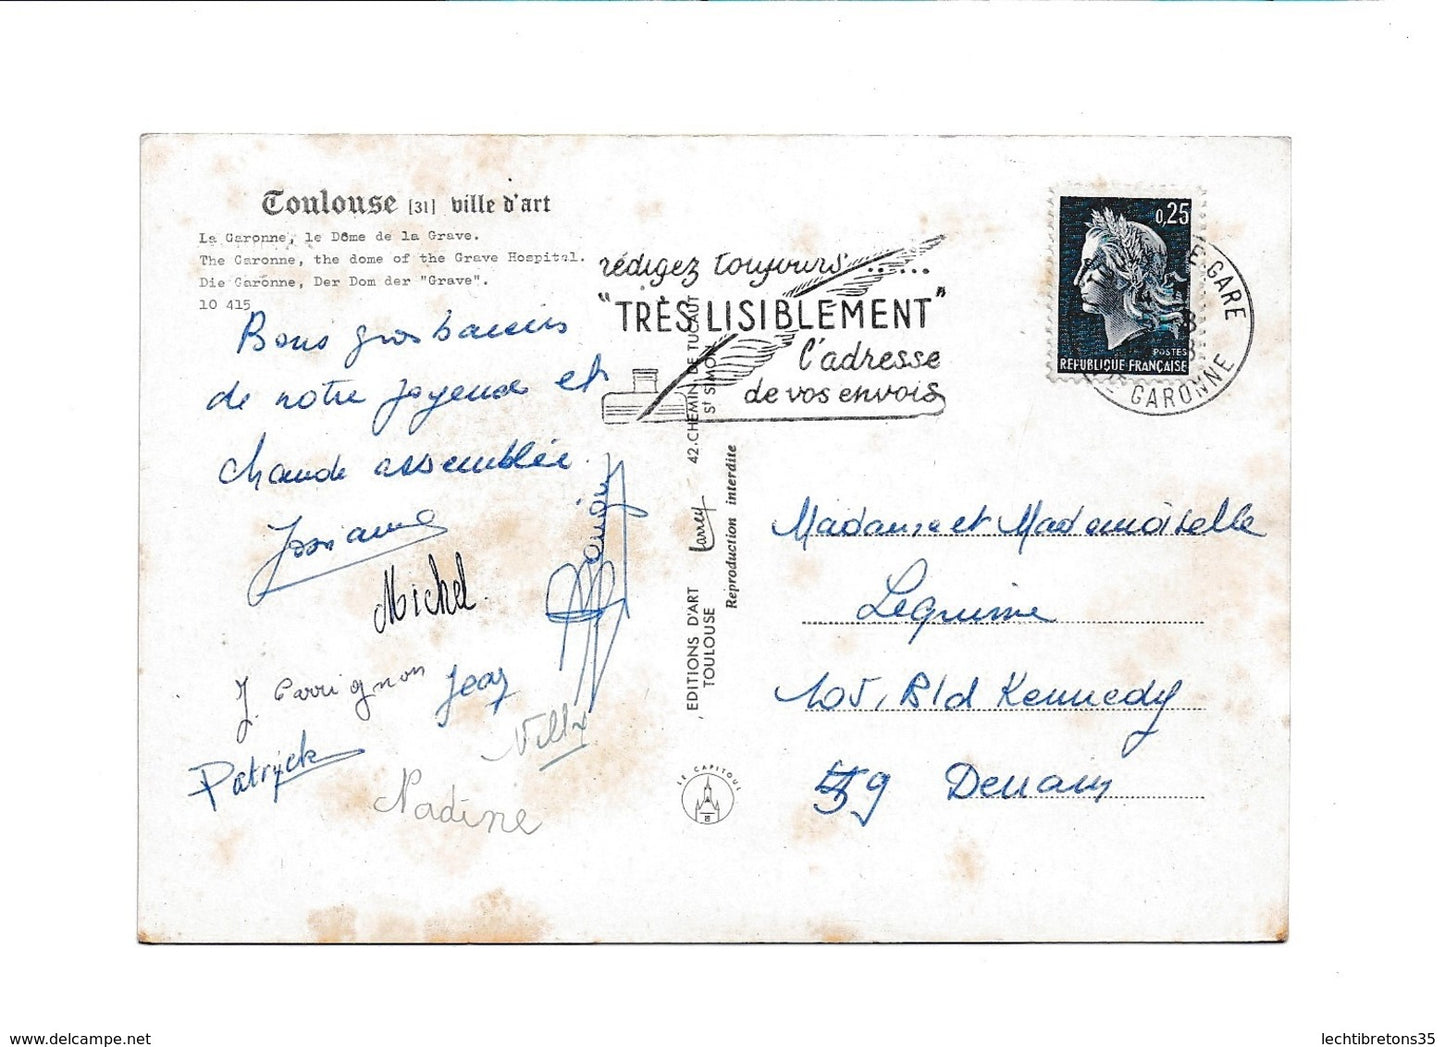 Toulouse [31] ville d'art
La Garonne, le Dôme de la Grave.
The Garonne, the dome of the Grave Hospital.
Die Garonne, Der Dom der "Grave".
10 415
rédigez toujours ......
"TRÈS LISIBLEMENT"
l'adresse
de vos envois
0,25
POSTES
REPUBLIQUE FRANÇAISE
E-GARE
GARONNE
Bons gros baisers
de notre joyeuse et
chaude assemblée.
Josiane
Michel.
J. Carrignon
Jean
Patryck
Villa
Nadine
EDITIONS D'ART Larrey 42.CHEMIN DE TUCAUT
TOULOUSE St SIMON
Reproduction interdite
LE CAPITOUL
Madame et Mademoiselle
Leguime
105, Bld Kennedy
59 Denain
www.delcampe.net
lechtibretons35